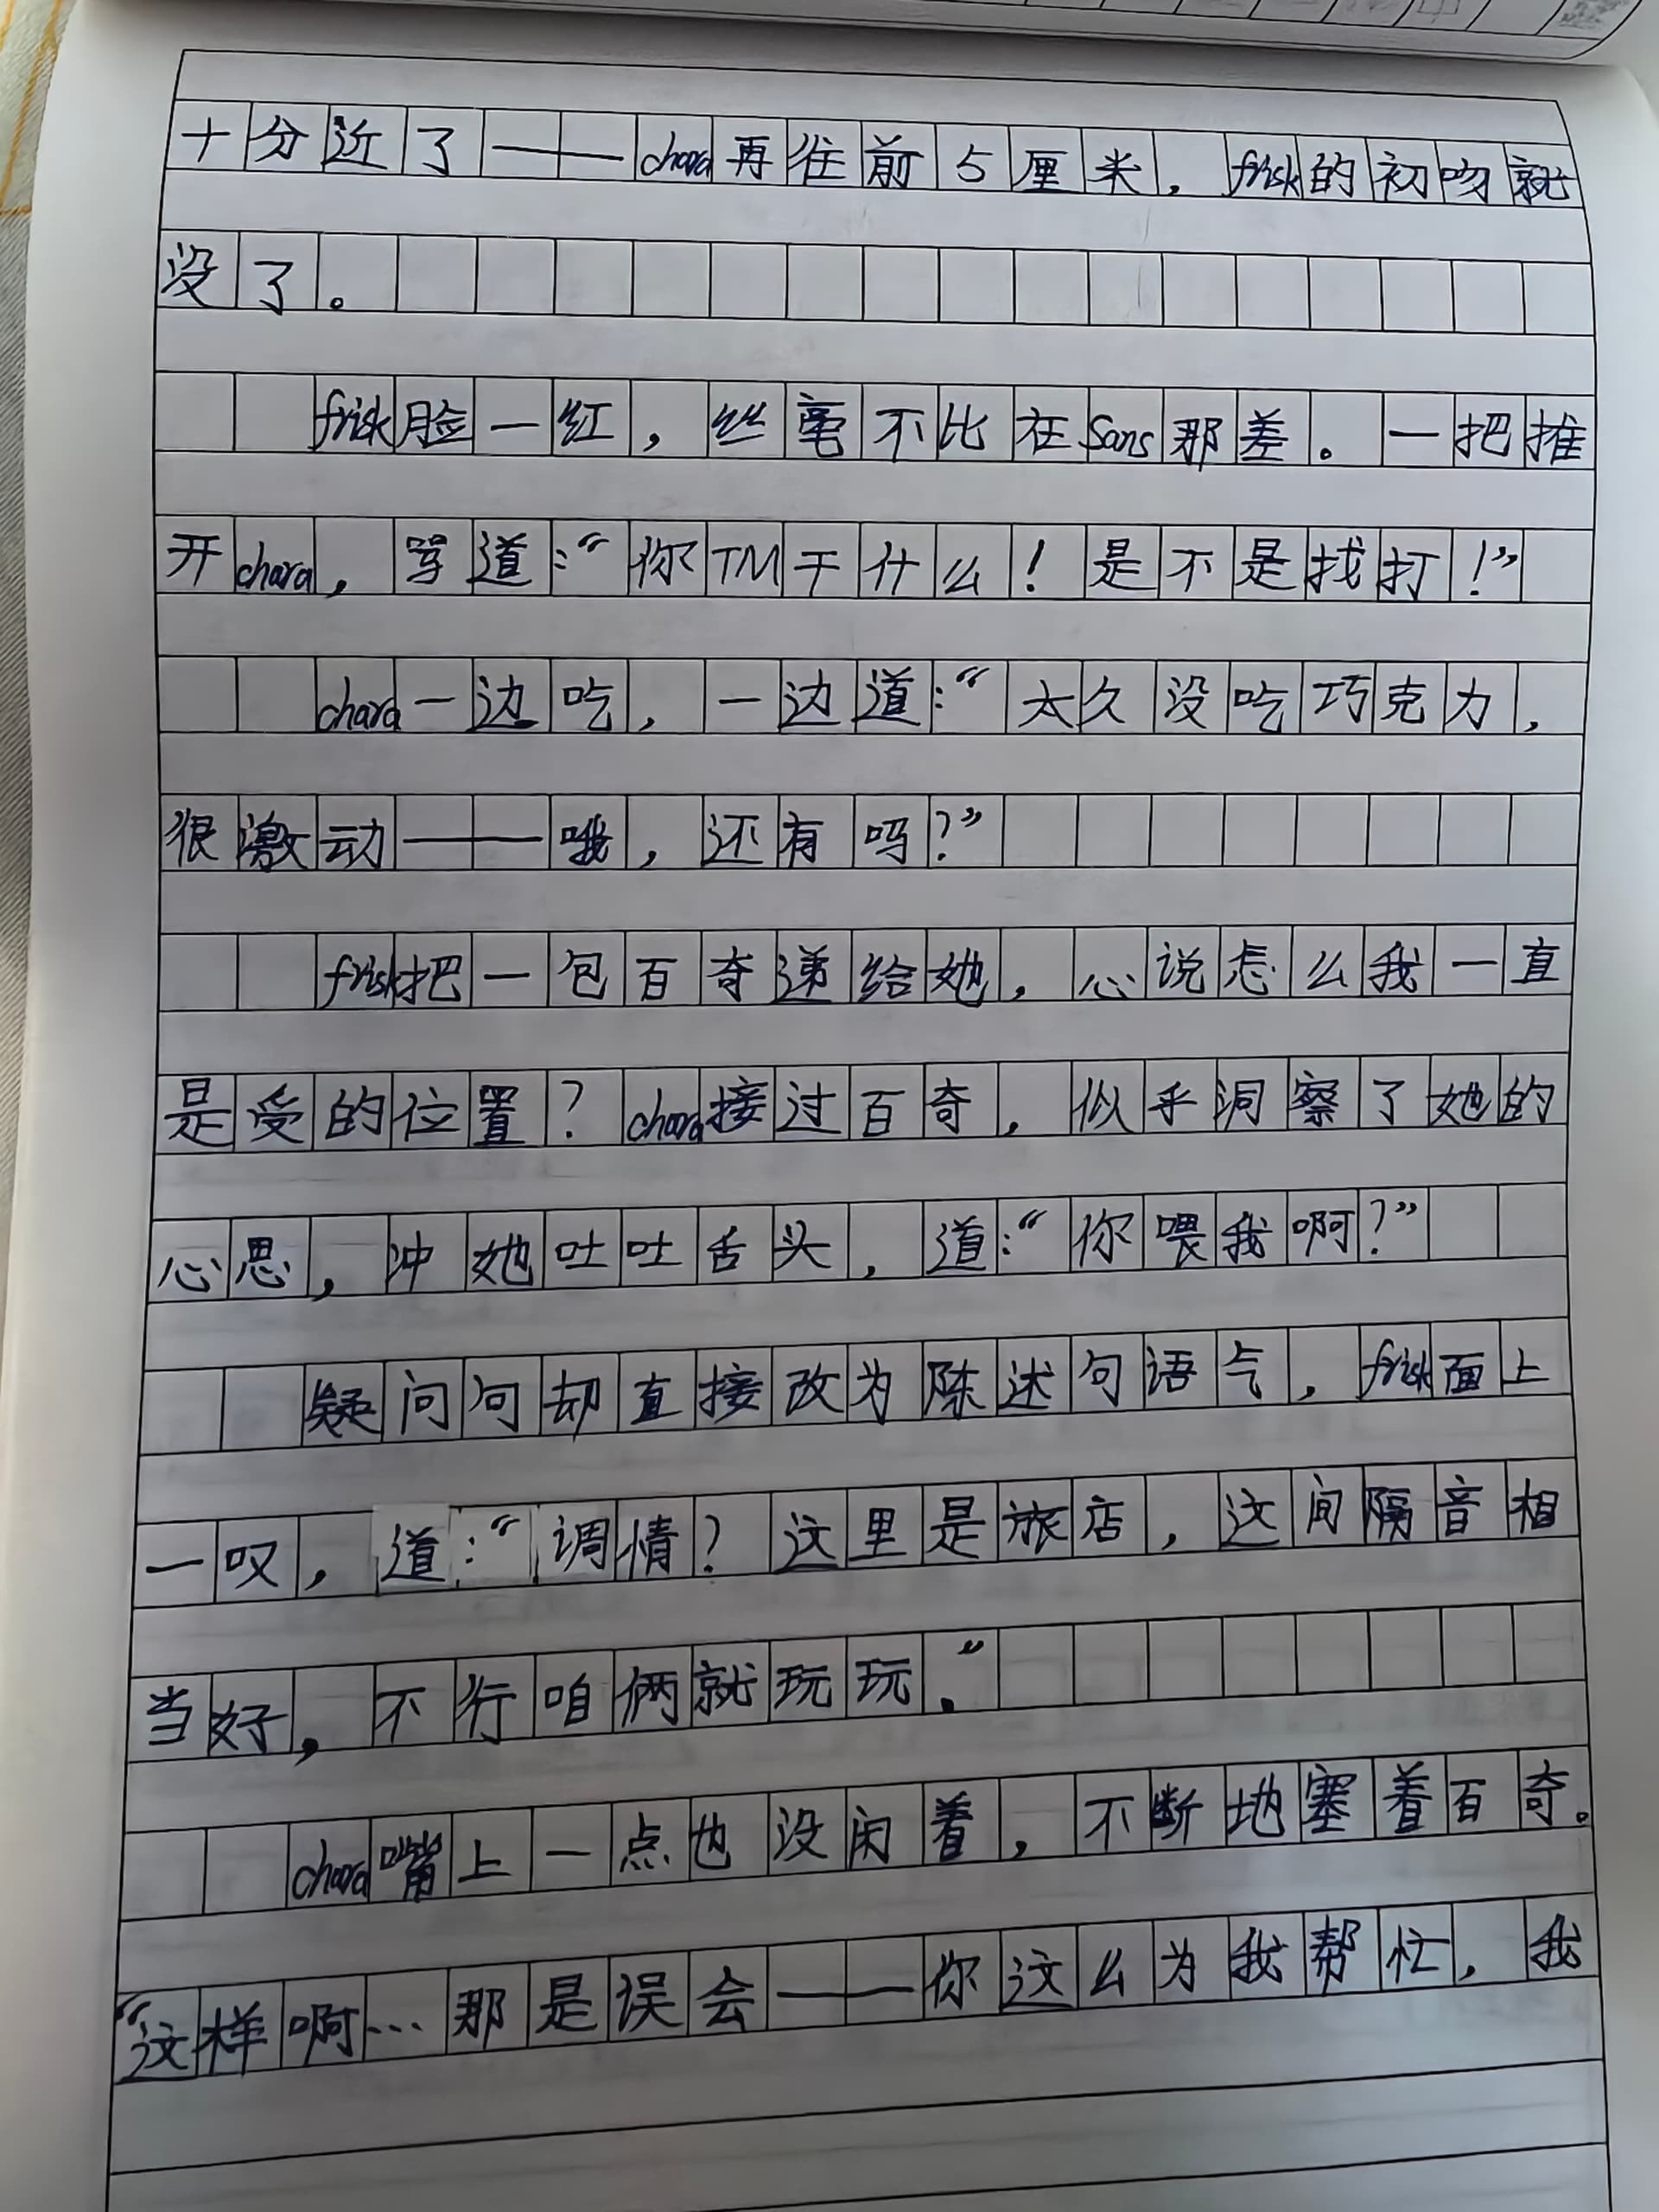 十分近了——chara再往前5厘米，frisk的初吻就
没了。
frisk脸一红，丝毫不比在Sans那差。一把推
开chara，骂道：“你TM干什么！是不是找打！”
chara一边吃，一边道：“太久没吃巧克力，
很激动——哦，还有吗？”
frisk把一包百奇递给她，心说怎么我一直
是受的位置？chara接过百奇，似乎洞察了她的
心思，冲她吐吐舌头，道：“你喂我啊？”
疑问句却直接改为陈述句语气，frisk面上
一叹，道：“调情？这里是旅店，这间隔音相
当好，不行咱俩就玩玩。”
chara嘴上一点也没闲着，不断地塞着百奇。
“这样啊…那是误会——你这么为我帮忙，我